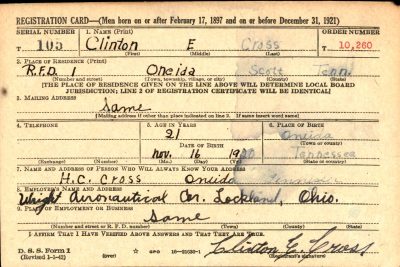 REGISTRATION CARD—(Men born on or after February 17, 1897 and on or before December 31, 1921)
SERIAL NUMBER 1. NAME (Print) ORDER NUMBER
T 105 Clinton E Cross T 10,260
(First) (Middle) (Last)
2. PLACE OF RESIDENCE (Print)
R.F.D. 1 Oneida Scott Tenn.
(Number and street) (Town, township, village, or city) (County) (State)
[THE PLACE OF RESIDENCE GIVEN ON THE LINE ABOVE WILL DETERMINE LOCAL BOARD
JURISDICTION; LINE 2 OF REGISTRATION CERTIFICATE WILL BE IDENTICAL]
3. MAILING ADDRESS
Same
[Mailing address if other than place indicated on line 2. If same insert word same]
4. TELEPHONE 5. AGE IN YEARS 6. PLACE OF BIRTH
21 Oneida
DATE OF BIRTH (Town or county)
Nov. 16 1920 Tennessee
(Exchange) (Number) (Mo.) (Day) (Yr.) (State or country)
7. NAME AND ADDRESS OF PERSON WHO WILL ALWAYS KNOW YOUR ADDRESS
H.C. Cross Oneida
8. EMPLOYER'S NAME AND ADDRESS
Wright Aeronautical Cor. Lockland, Ohio.
9. PLACE OF EMPLOYMENT OR BUSINESS
Same
(Number and street or R. F. D. number) (Town) (County) (State)
I AFFIRM THAT I HAVE VERIFIED ABOVE ANSWERS AND THAT THEY ARE TRUE.
D. S. S. Form 1
(Revised 1-1-42) (over) Clinton E. Cross